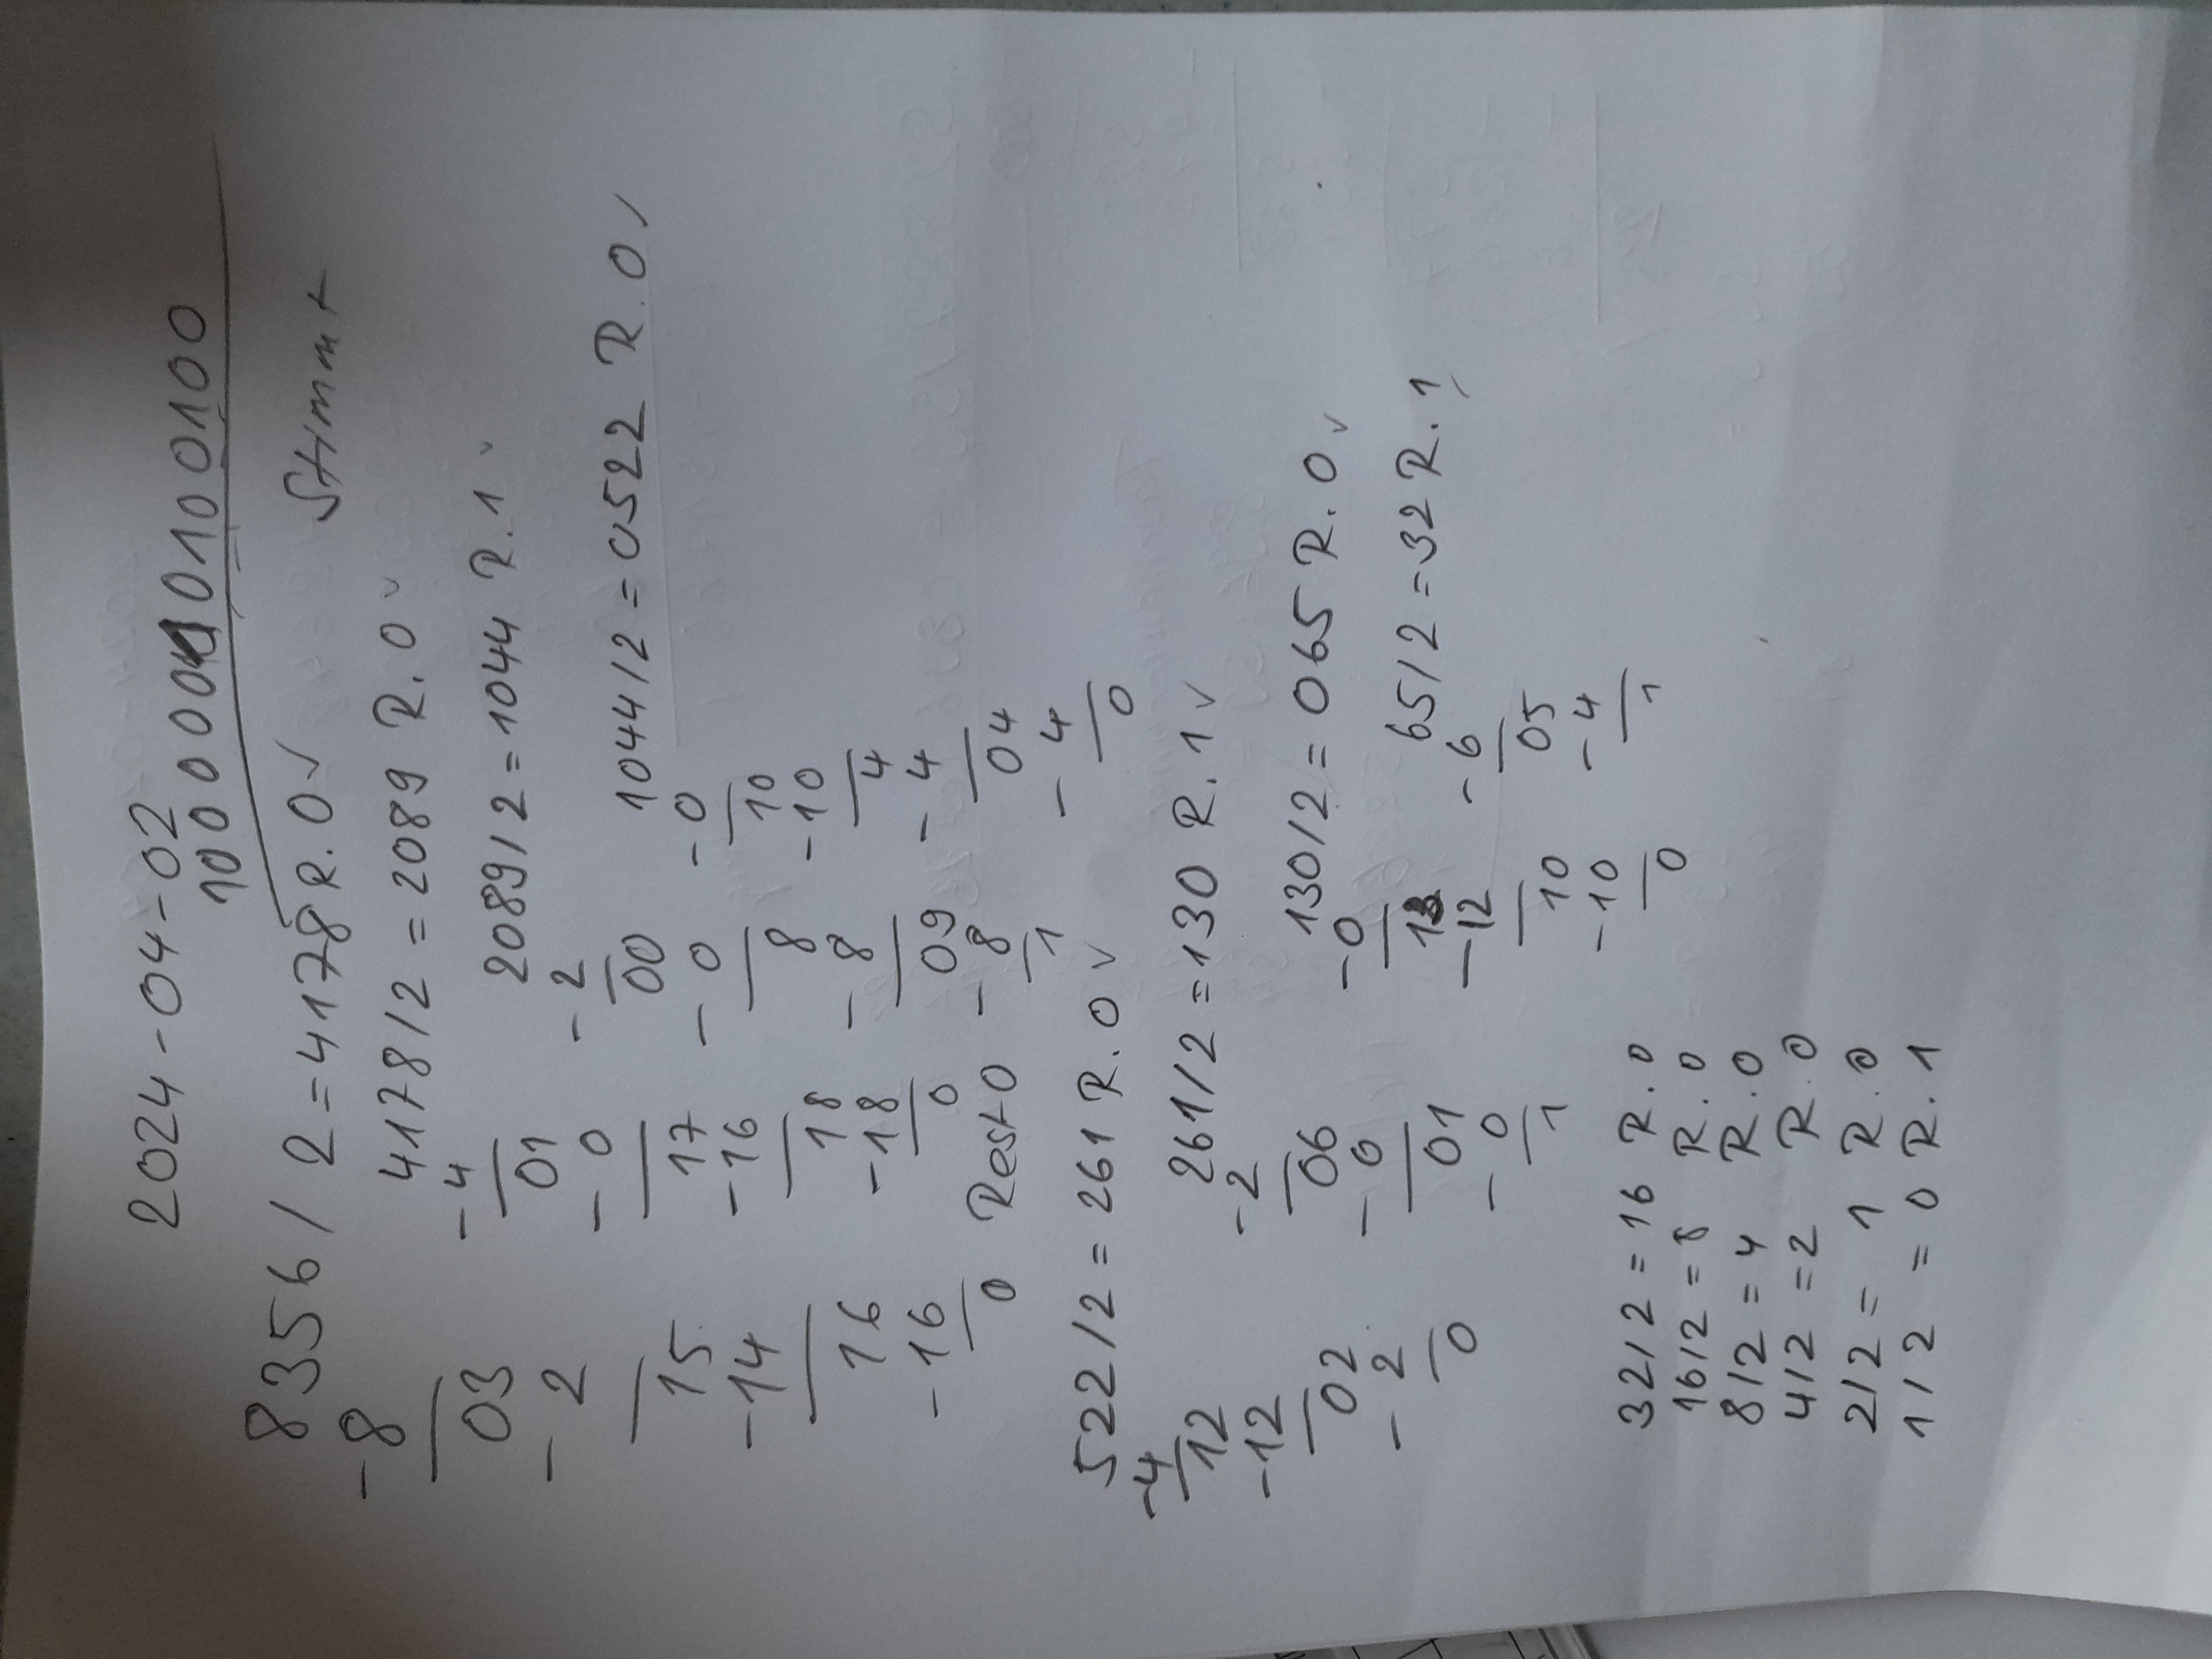 2024-04-02
10000010100100
8356/2=4178 R.0✓ Stimmt
-8
03
-2
15
-14
16
-16
0
4178/2=2089 R.0✓
-4
01
-0
17
-16
18
-18
0
Rest 0
2089/2=1044 R.1✓
-2
00
-0
8
-8
09
-8
1
1044/2=0522 R.0✓
-0
10
-10
4
-4
04
-4
0
522/2=261 R.0✓
-4
12
-12
02
-2
0
261/2=130 R.1✓
-2
06
-0
01
-0
1
130/2=065 R.0✓
-0
13
-12
10
-10
0
65/2=32 R.1
-6
05
-4
1
32/2=16 R.0
16/2=8 R.0
8/2=4 R.0
4/2=2 R.0
2/2=1 R.0
1/2=0 R.1